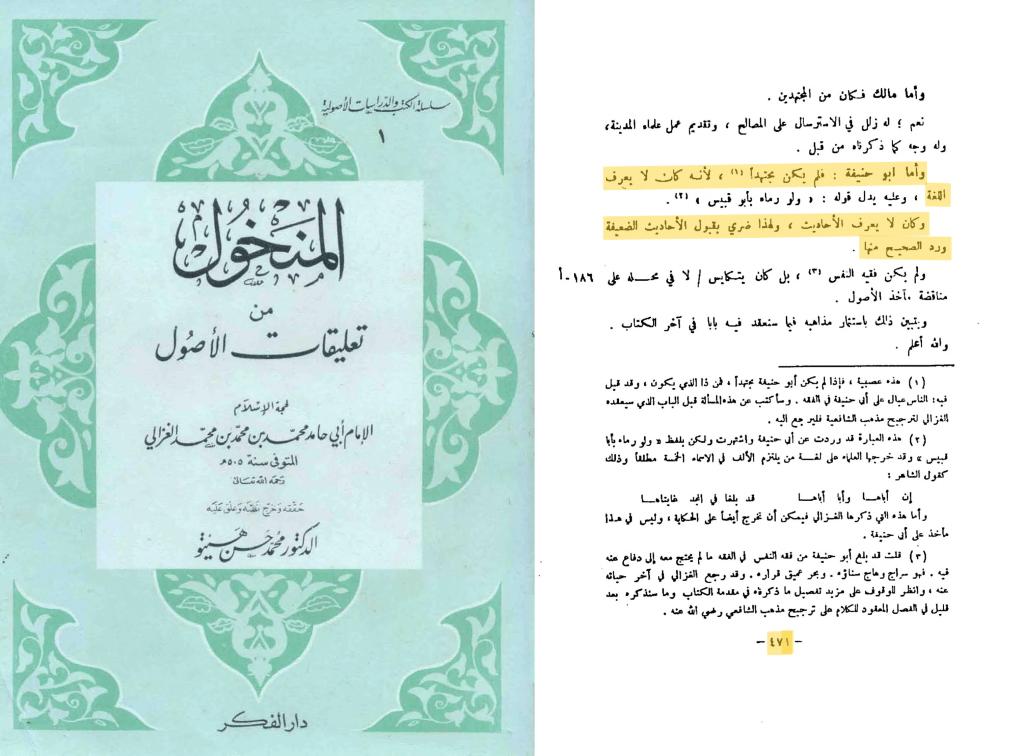 سلسلة الكتب والدراسات الأصولية
١
المنخول
من
تعليقات الأصول
لحجة الإسلام
الإمام أبي حامد محمد بن محمد بن محمد الغزالي
المتوفى سنة ٥٠٥ هـ
رحمه الله تعالى
حققه وخرج نصه وعلق عليه
الدكتور محمد حسن هيتو
دار الفكر
وأما مالك فكان من المجتهدين .
نعم ؛ له زلل في الاسترسال على المصالح ، وتقديم عمل علماء المدينة،
وله وجه كما ذكرناه من قبل .
وأما ابو حنيفة : فلم يكن مجتهداً (١) ، لأنه كان لا يعرف
اللغة ، وعليه يدل قوله : « ولو رماه بأبو قبيس » (٢) .
وكان لا يعرف الأحاديث ، ولهذا ضري بقبول الأحاديث الضعيفة
ورد الصحيح منها .
ولم يكن فقيه النفس (٣) ، بل كان يتكايس / لا في محله على ١٨٦-أ
مناقضة مآخذ الأصول .
ويتبين ذلك باستثار مذاهبه فيما سنعقد فيه بابا في آخر الكتاب .
والله أعلم .
(١) هذه عصبية ، فإذا لم يكن أبو حنيفة مجتهداً ، فمن ذا الذي يكون ، وقد قيل
فيه: الناس عيال على أبي حنيفة في الفقه . وسأكتب عن هذه المسألة قبل الباب الذي سيعقده
الغزالي لترجيح مذهب الشافعية فليرجع اليه .
(٢) هذه العبارة قد وردت عن أبي حنيفة واشتهرت ولكن بلفظ « ولو رماه بأبا
قبيس » وقد خرجها العلماء على لغة من يلتزم الألف في الاسماء الخمسة مطلقاً وذلك
كقول الشاعر :
إن أباها وأبا أباها قد بلغا في المجد غايتاها
وأما هذه التي ذكرها الغزالي فيمكن أن تخرج أيضاً على الحكاية ، وليس في هذا
مأخذ على أبي حنيفة .
(٣) قلت قد بلغ أبو حنيفة من فقه النفس في الفقه ما لم يحتج معه إلى دفاع عنه
فيه . فهو سراج وهاج سناؤه . وبحر عميق قراره . وقد رجع الغزالي في آخر حياته
عنه ، وانظر للوقوف على مزيد تفصيل ما ذكرناه في مقدمة الكتاب وما سنذكره بعد
قليل في الفصل المعقود للكلام على ترجيح مذهب الشافعي رضي الله عنه .
– ٤٧١ –